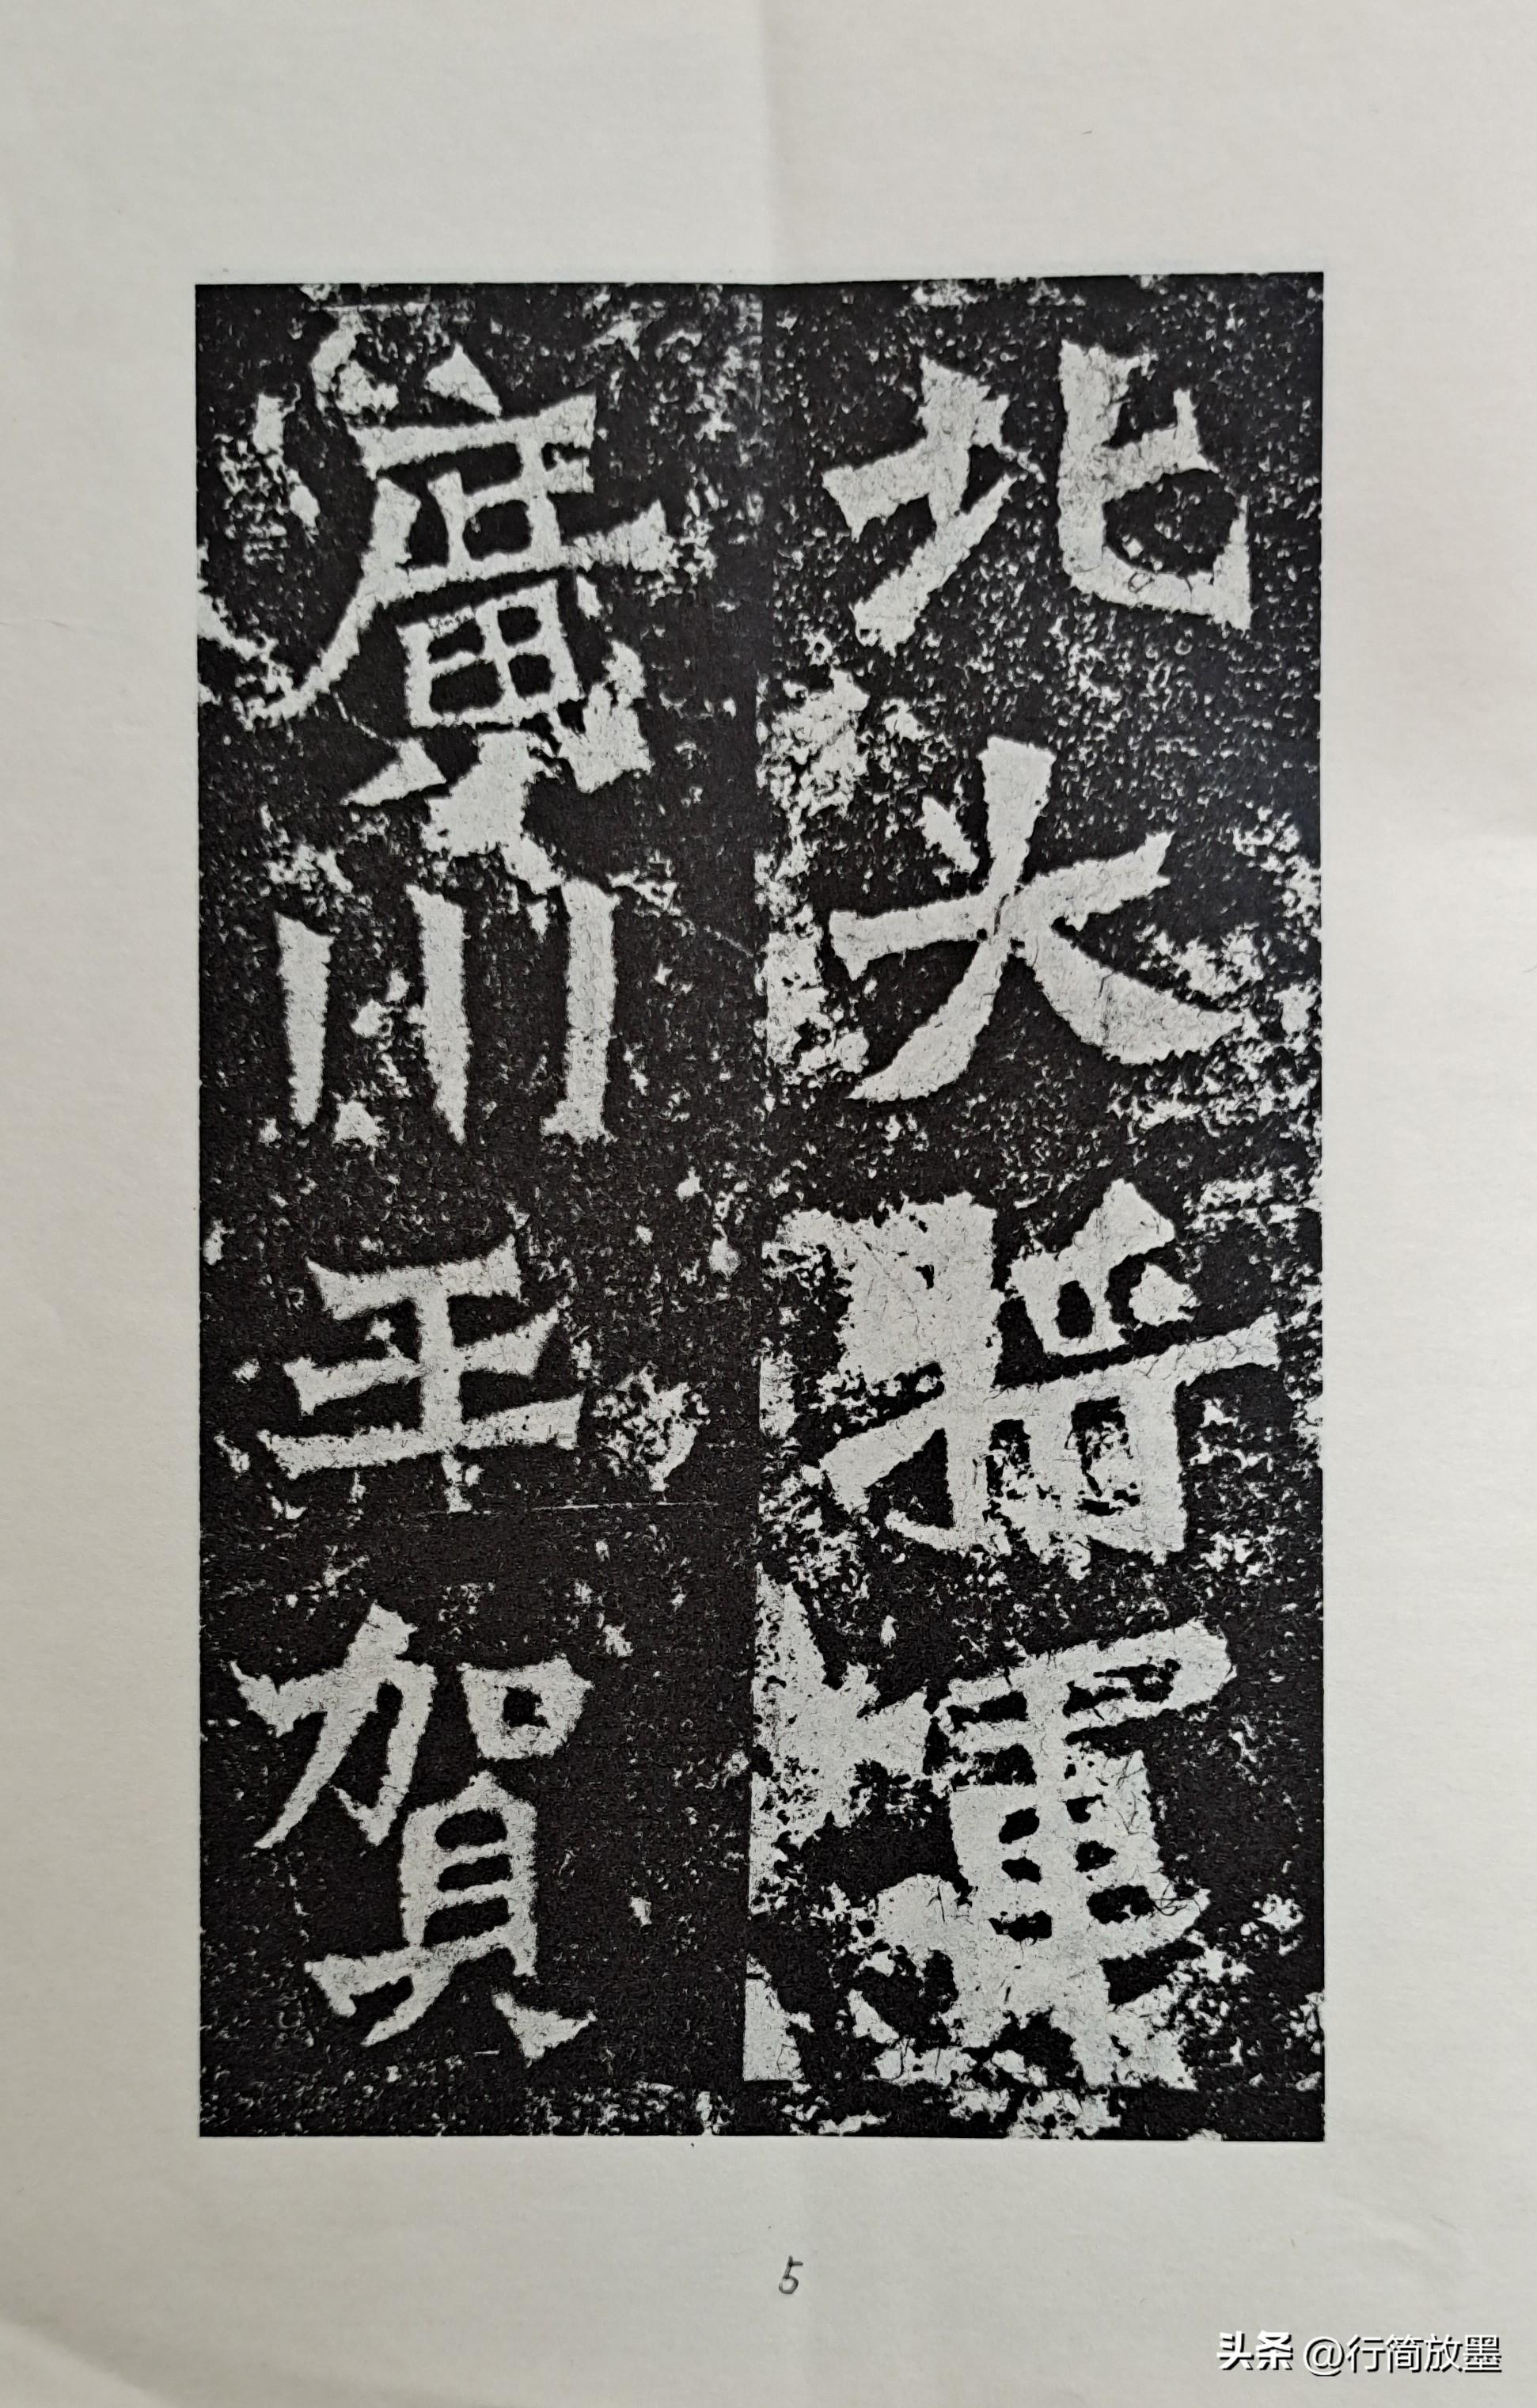 北大將軍
廣川王賀
5
头条 @行简放墨